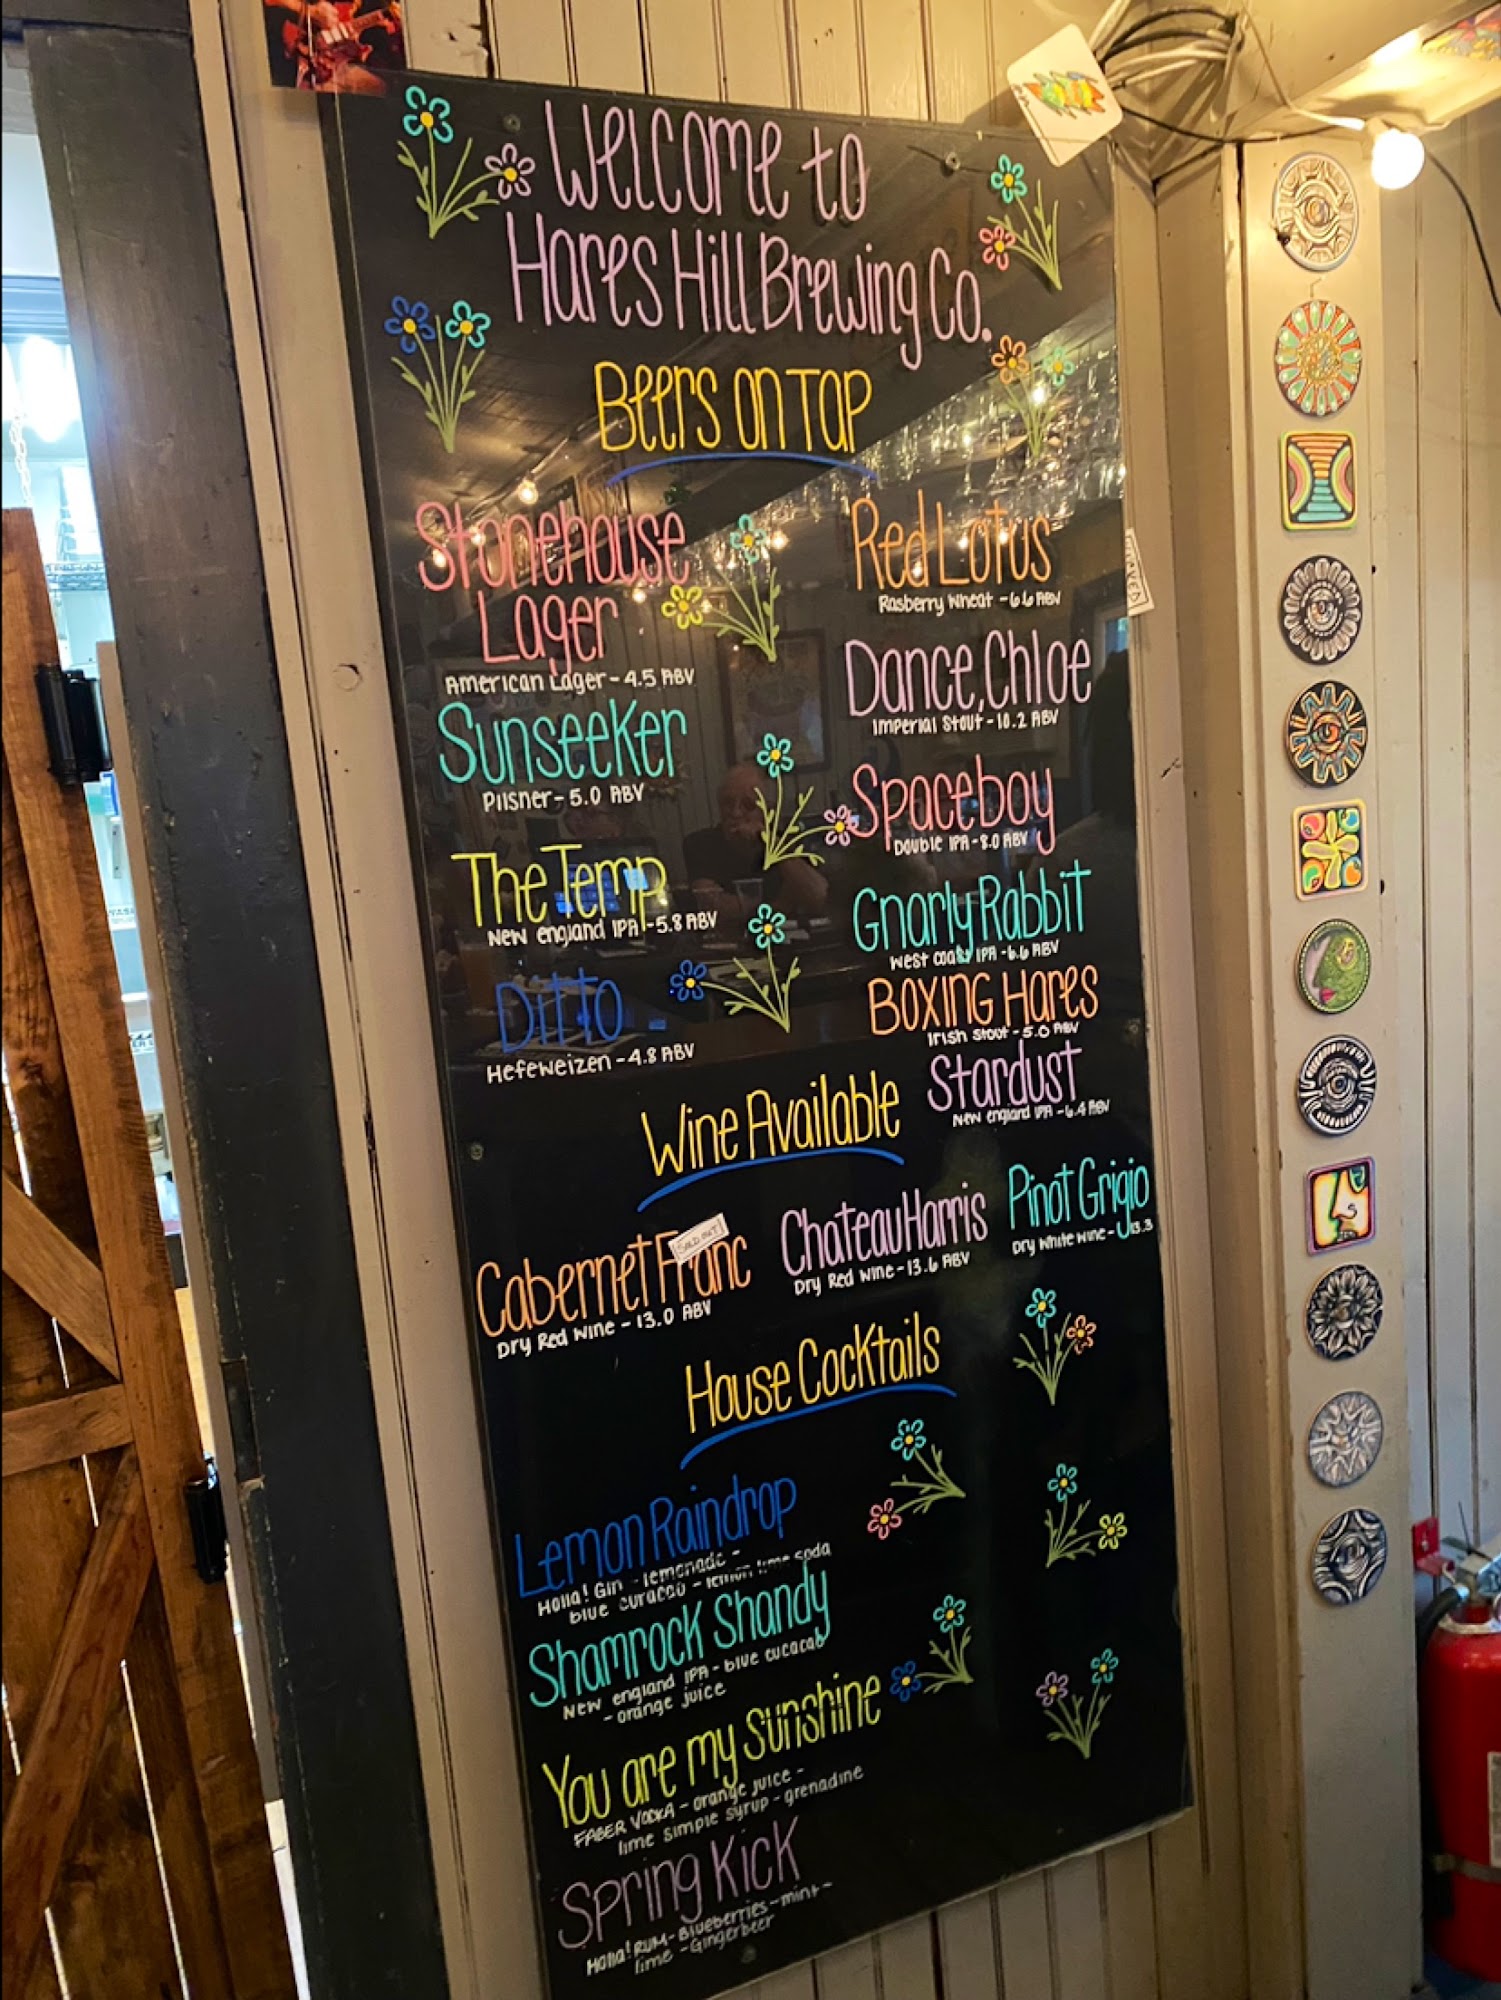 Welcome to
Hares Hill Brewing Co.
Beers on Tap
Stonehouse
Lager
American Lager - 4.5 ABV
Sunseeker
Pilsner - 5.0 ABV
The Temp
New England IPA - 5.8 ABV
Ditto
Hefeweizen - 4.8 ABV
Red Lotus
Rasberry Wheat - 6.6 ABV
Dance, Chloe
Imperial Stout - 10.2 ABV
Spaceboy
Double IPA - 8.0 ABV
Gnarly Rabbit
West Coast IPA - 6.6 ABV
Boxing Hares
Irish Stout - 5.0 ABV
Stardust
New England IPA - 6.4 ABV
Wine Available
Cabernet Franc
SOLD OUT!
Dry Red Wine - 13.0 ABV
Chateau Harris
Dry Red Wine - 13.6 ABV
Pinot Grigio
Dry White Wine - 13.3
House Cocktails
Lemon Raindrop
Holla! Gin - lemonade -
blue curacao - lemon lime soda
Shamrock Shandy
New England IPA - blue cucacao
- orange juice
You are my Sunshine
FABER VODKA - orange juice -
lime simple syrup - grenadine
Spring Kick
Holla! RUM - Blueberries - mint -
lime - Gingerbeer